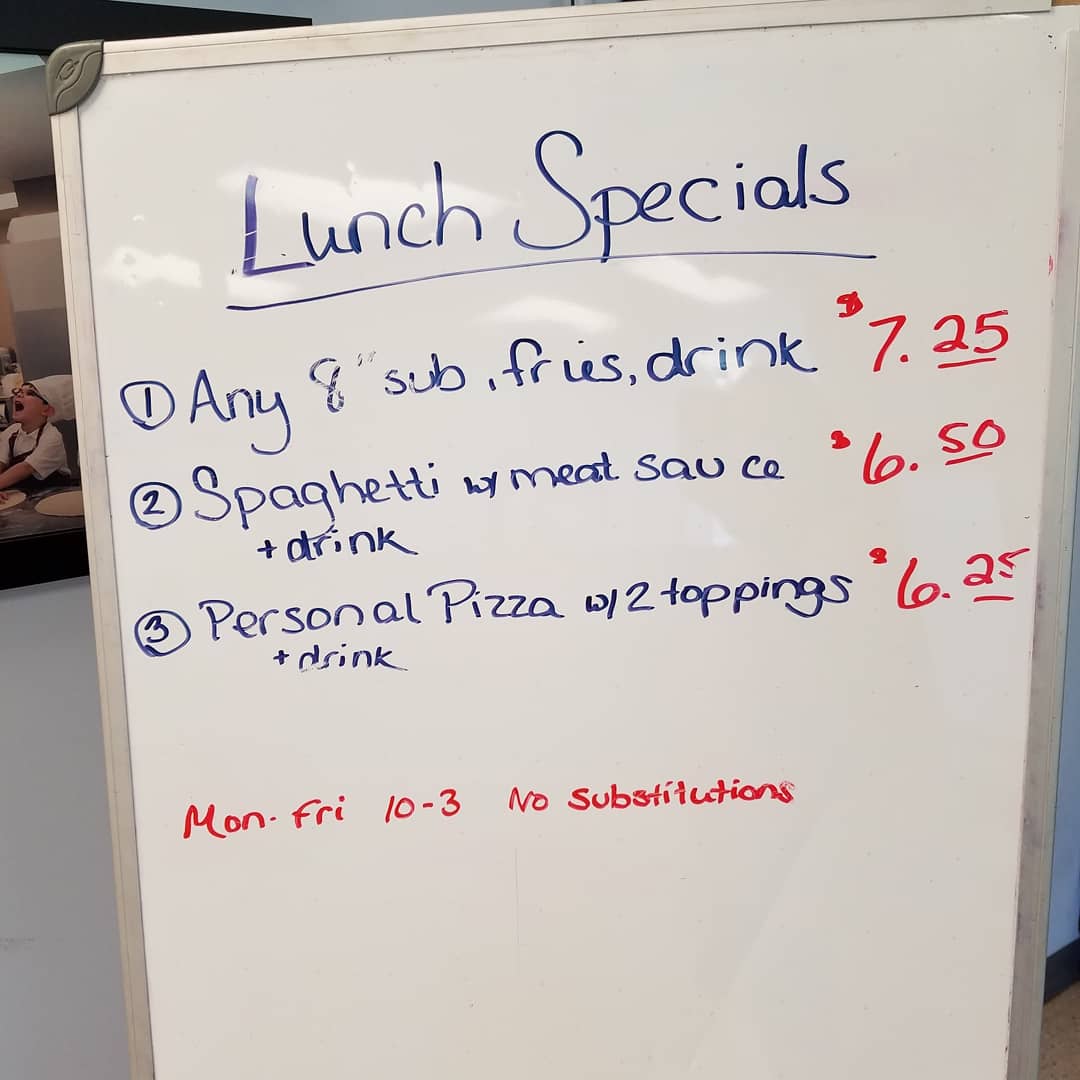 Lunch Specials
① Any 8" sub, fries, drink $7.25
② Spaghetti w/ meat sauce $6.50
+ drink
③ Personal Pizza w/2 toppings $6.25
+ drink
Mon-Fri 10-3 No Substitutions